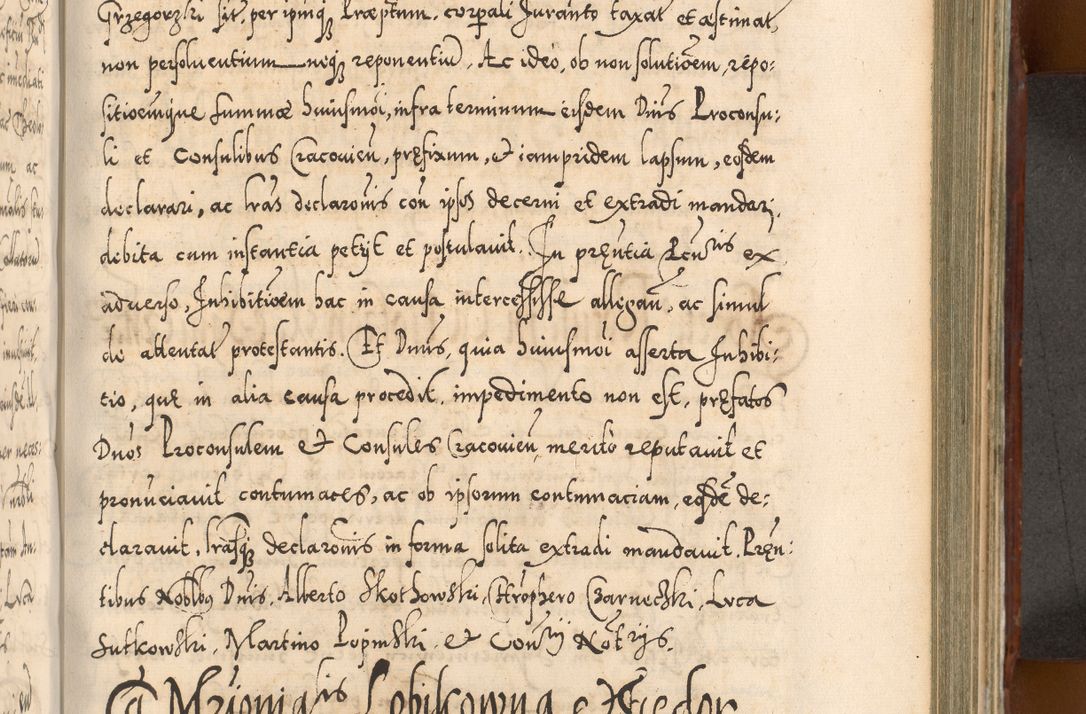 Grzegorzki sit, per ipūq₃ Præptum, corpali Juranto taxat et æstimat,
non persolventium neq₃ reponentiū. Ac ideo, ob non solutioēm, repo:
sitioēmque summæ huiusmoi, infra terminum eisdem Dnis Proconsu:
li et Consulibus Cracovieñ, pręfixum, et iampridem lapsum, eosdem
declarari, ac lrās declaroñis coñ ipsos decerni et extradi mandari,
debita cum instantia petijt et postulavit. In pręntia Rcñtis ex
adverso, Inhibitioēm hac in causa intercessisse allegañ, ac simul
de attentat protestantis. Et Dnus, quia huiusmoi asserta Inhibi:
tio, quę in alia causa procedit, impedimento non est, pręfatos
Dnos Proconsulem et Consules Cracovieñ, merito reputavit et
pronūciavit contumaces, ac ob ipsorum contumaciam, eosdē de:
claravit, lrāsq₃ declaroñis in forma solita extradi mandavit. Pręn:
tibus Nobilibus Dnis, Alberto Skothowski, Chrõphero Czarnecski, Luca
Sutkowski, Martino Popinski, et Conrij Notrijs.
Mrionialis Lobikowna e Niedor